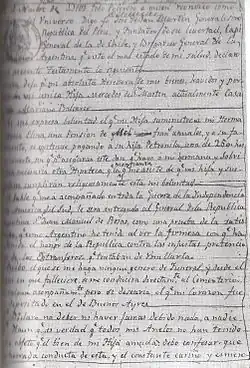 Nombre de Dios Todo Poderoso a quien reconozco como
del Universo Digo yo José de San Martin Generalísimo
República del Perú, y Fundador de su libertad, Capi
General de la de Chile, y Brigadier General de la
Argentina, que visto el mal estado de mi salud, declaro
presente Testamento lo siguiente
dejo por mi absoluta Heredera de mis bienes, havidos y por
unica Hija Mercedes de San Martin actualmente casada
Mariano Balcarce
mi expresa voluntad el que mi Hija suministre a mi Herma
Elena, una Pension de Mil fran anuales, y a su fa
se continue pagando a su hija Petronila, una de 250 has
sin que para asegurar este don que hago a mi hermana y Sobri
necesaria otra Hipoteca, que la confianza que me asiste de que mi hija y sus
cumpliran religiosamente esta mi voluntad
Sable que me ha acompañado en toda la Guerra de la Independencia
America del Sud, le será entregado al General de la Republica
Juan Manuel de Rosas, como una prueba de la satis
como Argentino he tenido al ver la firmeza con que ha
el honor de la Republica contra las injustas pretencio
los Extranjeros que trataban de Umillarla
el que se me haga ningun genero de Funeral, y desde el
en que falleciere, se me conducirá directamente al cementerio
acompañamiento, pero si desearia el que mi Corazon fue
depositado en el de Buenos Ayres
Declaro no deber ni haver jamas debido nada, a nadie
es verdad que todos mis Anelos no han tenido
objeto que el bien de mi Hija amada, debo confesar, que
honrada conducta de esta, y el constante cariño y esmero